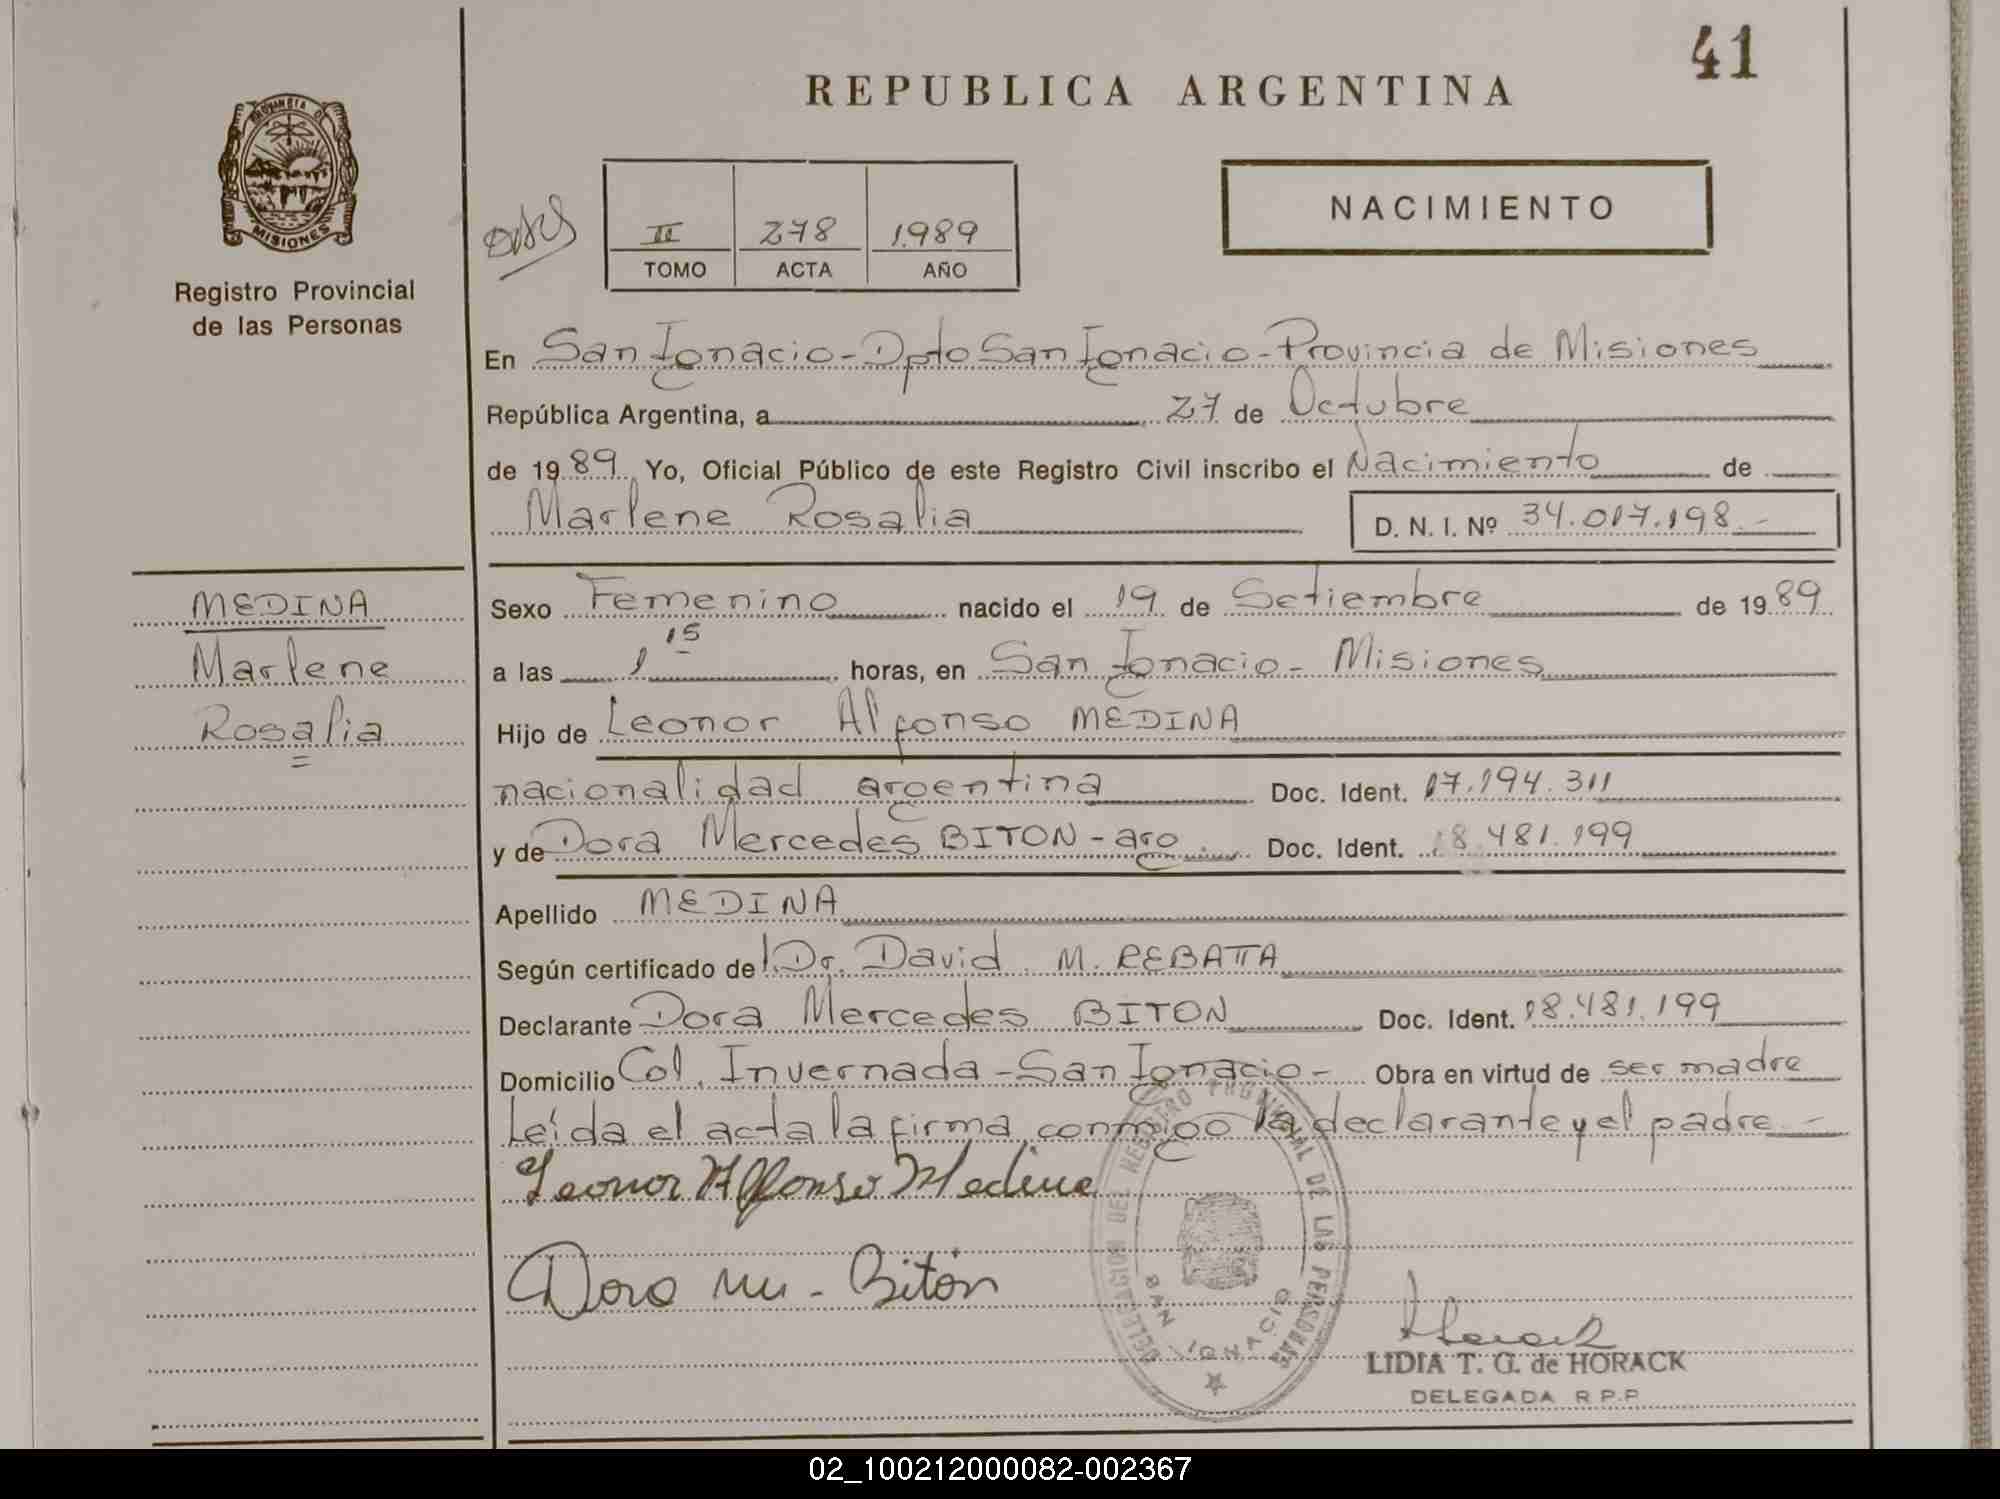 41
REPUBLICA ARGENTINA
PROVINCIA D
MISIONES
Registro Provincial
de las Personas
II 278 1.989
TOMO ACTA AÑO
NACIMIENTO
En San Ignacio - Dpto San Ignacio - Provincia de Misiones
República Argentina, a 27 de Octubre
de 1989 Yo, Oficial Público de este Registro Civil inscribo el Nacimiento de
Marlene Rosalia D. N. I. Nº 34.017.198.-
MEDINA
Marlene
Rosalia
Sexo Femenino nacido el 19 de Setiembre de 1989
a las 1 15 horas, en San Ignacio - Misiones
Hijo de Leonor Alfonso MEDINA
nacionalidad argentina Doc. Ident. 17.194.311
y de Dora Mercedes BITON - arg. Doc. Ident. 18.481.199
Apellido MEDINA
Según certificado de l. Dr. David M. REBATTA
Declarante Dora Mercedes BITON Doc. Ident. 18.481.199
Domicilio Col. Invernada - San Ignacio - Obra en virtud de ser madre
Leída el acta la firma conmigo la declarante y el padre -
Leonor Alfonso Medina
Dora M. - Bitón
DELEGACION DEL REGISTRO PROVINCIAL DE LAS PERSONAS
SAN IGNACIO
Horack
LIDIA T. G. de HORACK
DELEGADA R.P.P.
02_100212000082-002367